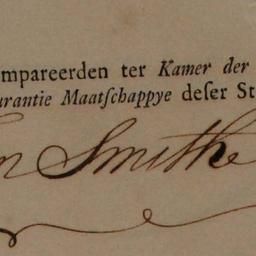 mpareerden ter Kamer der
urantie Maatſchappye deſer St
n Smithe